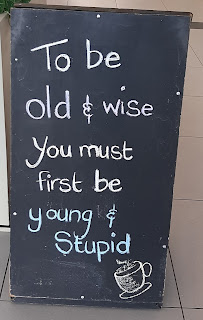 To be
old & wise
You must
first be
young &
Stupid